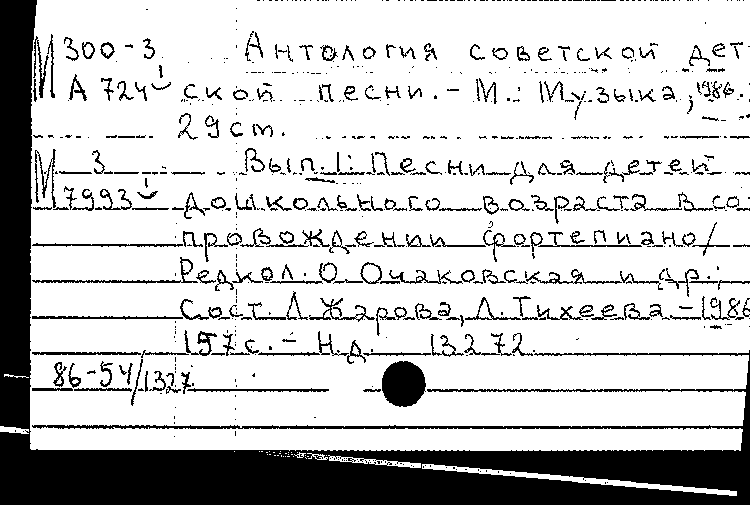 М 300-3 Антология советской дет
А 724 ской песни. - М.: Музыка, 1986.
29 cm.
М 3 Вып. 1: Песни для детей
7993 дошкольного возраста в со
провождении фортепиано/
Редкол. О. Очаковская и др.;
Сост. Л. Жарова, Л. Тихеева. - 1986
157 с. - Н.д. 13272
86-54/1327